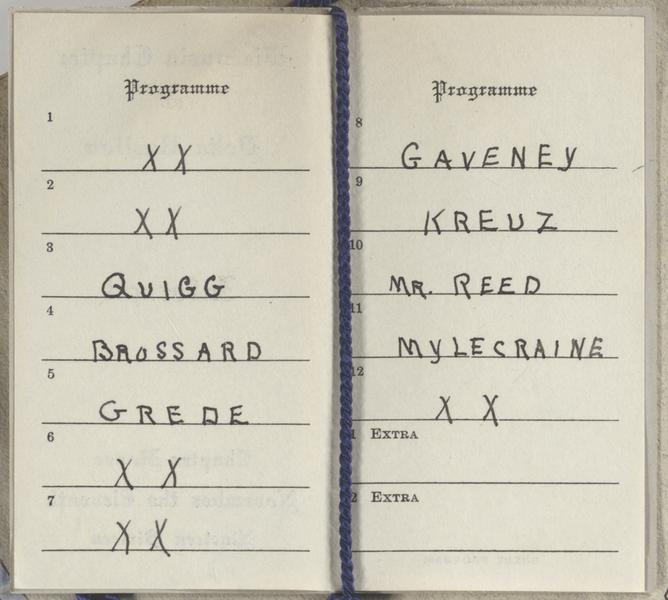 Programme
1
X X
2
X X
3
QUIGG
4
BROSSARD
5
GREDE
6
X X
7
X X
Programme
8
GAVENEY
9
KREUZ
10
MR. REED
11
MYLECRAINE
12
X X
1 EXTRA
2 EXTRA